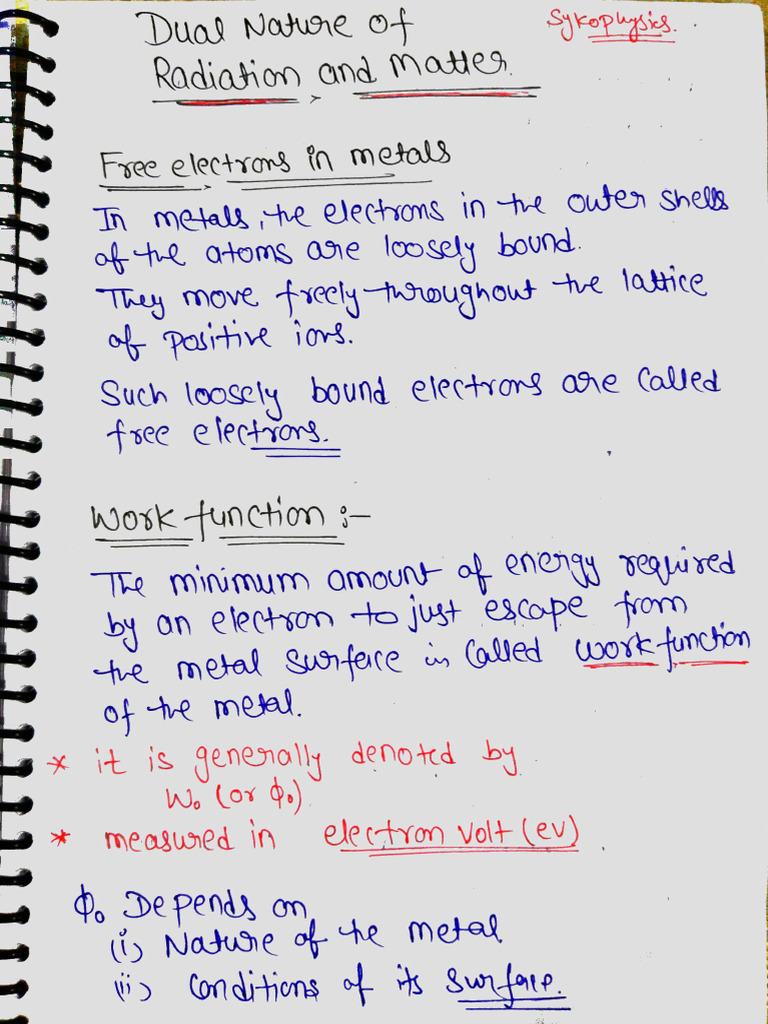 Dual Nature of
Sykophysics.
Radiation and Matter.
Free electrons in metals
In metals, the electrons in the outer shells
of the atoms are loosely bound.
They move freely throughout the lattice
of positive ions.
Such loosely bound electrons are called
free electrons.
Work function :-
The minimum amount of energy required
by an electron to just escape from
the metal surface is called work function
of the metal.
* it is generally denoted by
W₀ (or ϕ₀)
* measured in electron volt (ev)
ϕ₀ Depends on
(i) Nature of the metal
(ii) conditions of its surface.